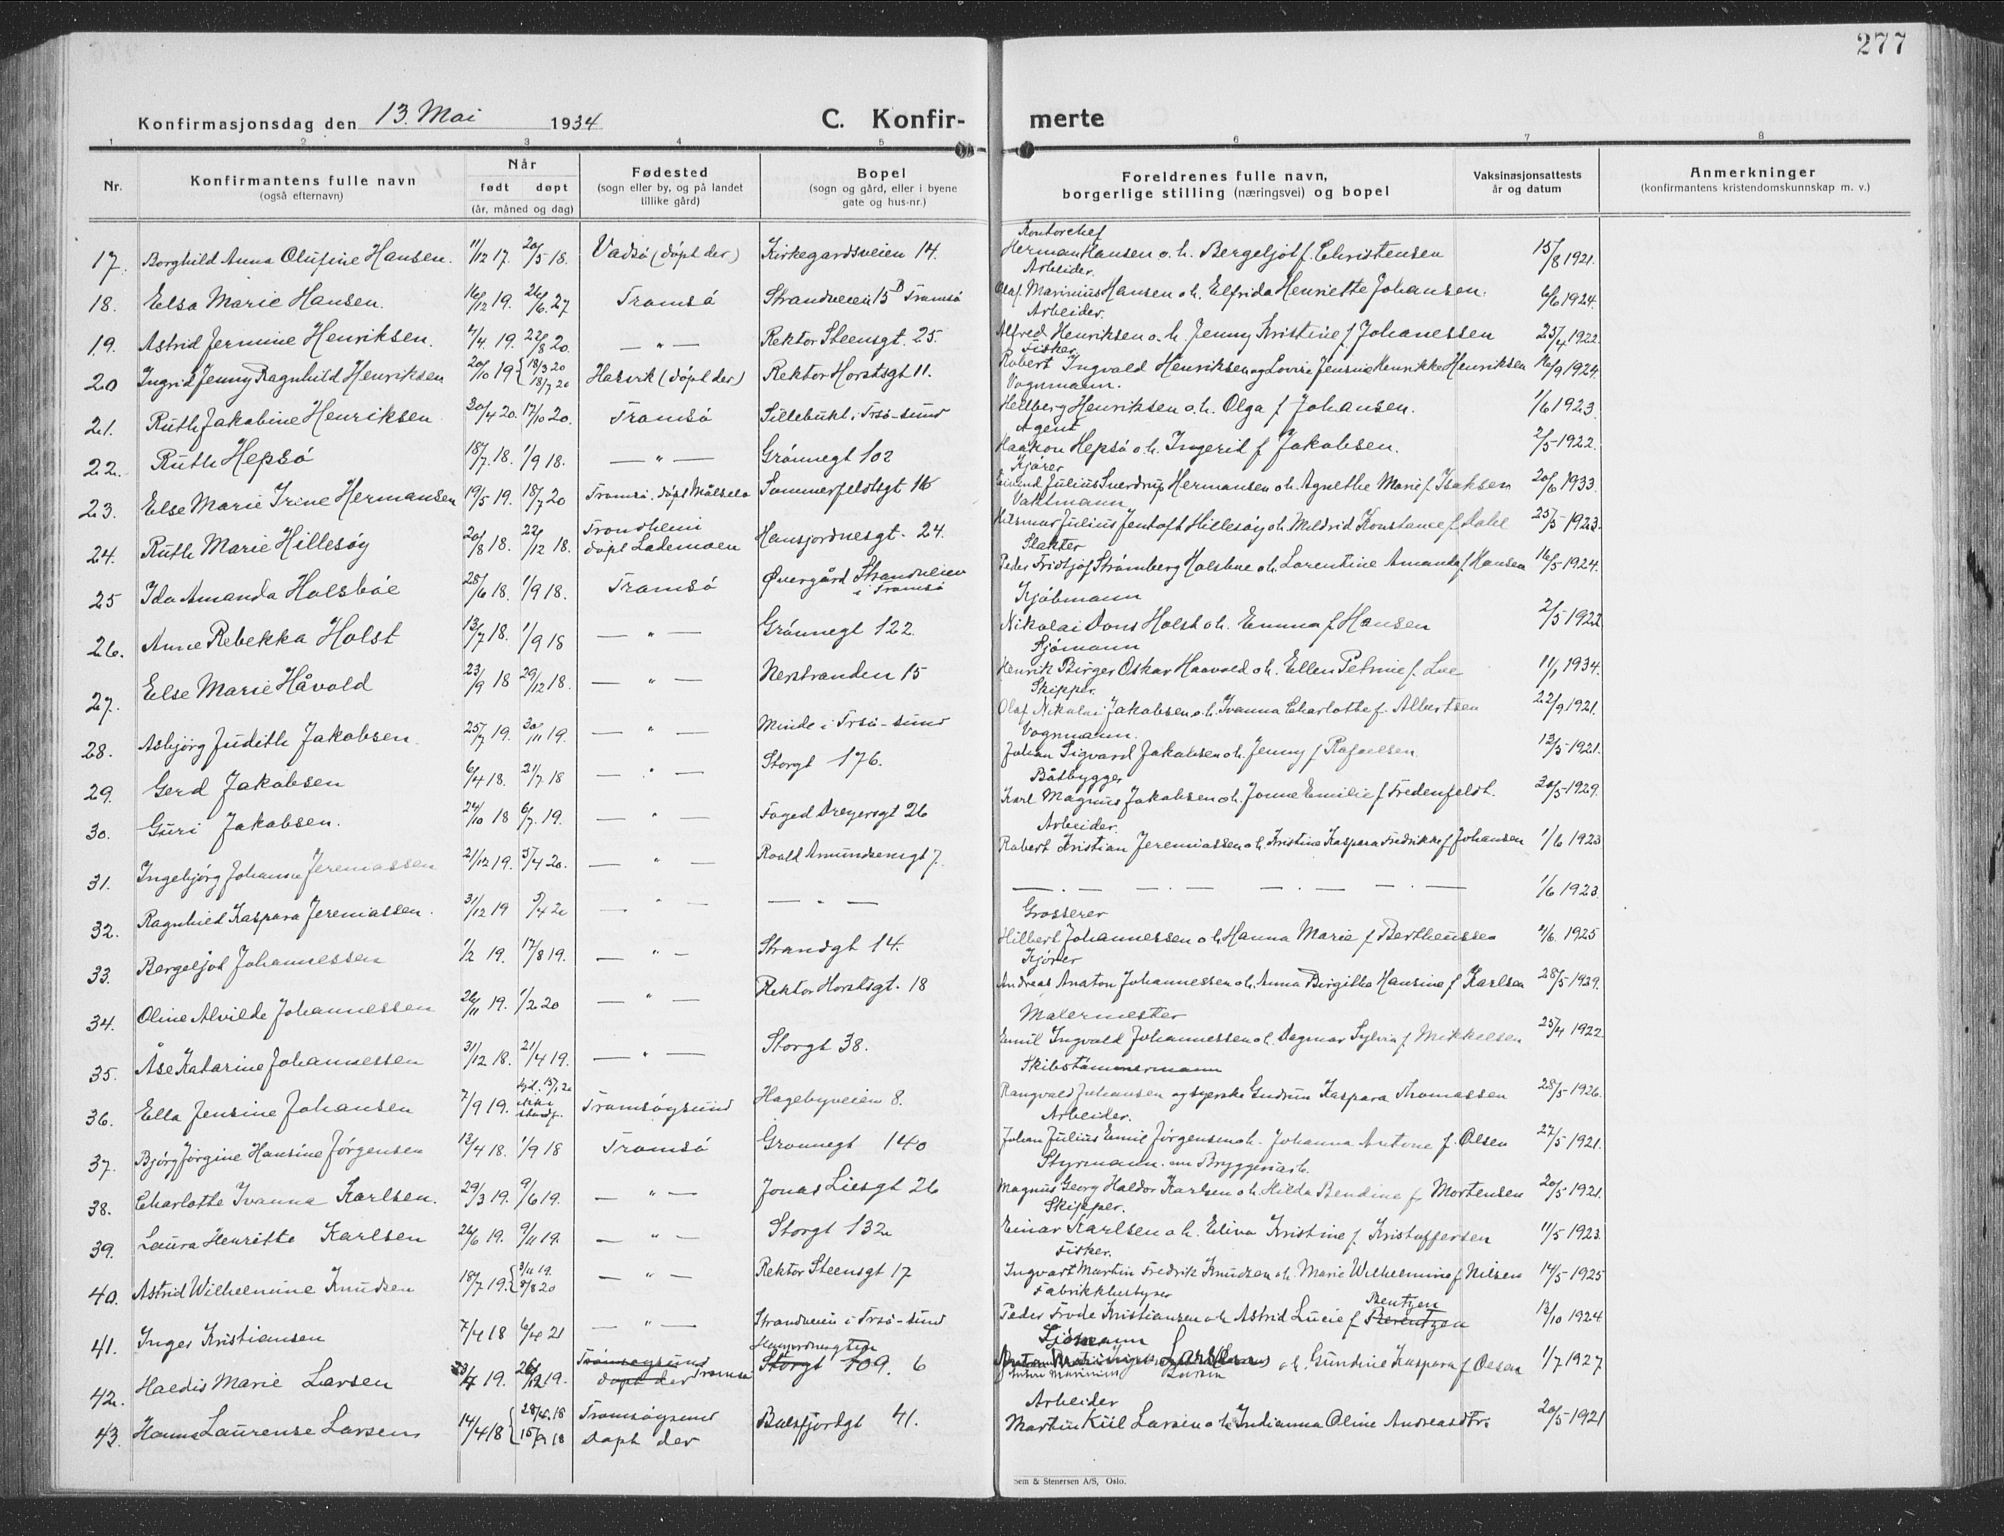 277
Konfirmasjonsdag den 13. Mai 1934
C. Konfir- merte
1 2 3 4 5 6 7 8
Nr.
Konfirmantens fulle navn
(også efternavn)
Når
født døpt
(år, måned og dag)
Fødested
(sogn eller by, og på landet
tillike gård)
Bopel
(sogn og gård, eller i byene
gate og hus-nr.)
Foreldrenes fulle navn,
borgerlige stilling (næringsvei) og bopel
Vaksinasjonsattests
år og datum
Anmerkninger
(konfirmantens kristendomskunnskap m. v.)
Kontorchef
17. Borghild Anna Olufine Hansen. 11/12 17. 20/5 18. Vadsø (døpt der) Kirkegardsveien 14. Herman Hansen o. h. Bergeljot f. Christensen 15/8 1921.
Arbeider.
18. Elsa Marie Hansen. 16/12 19. 26/6. 27 Tromsø Strandveien 15 B Tromsø Olaf Marinius Hansen o h. Elfrida Henriette Johansen. 6/6 1924.
Arbeider.
19. Astrid Jermine Henriksen. 4/4. 19. 22/8 20. — " — Rektor Steensgt. 25. Alfred Henriksen o. h. Jenny Kristine f. Johanessen 25/4 1922.
Fisker.
20 Ingrid Jenny Ragnhild Henriksen 20/10 19 { 18/3 20 18/7 20 Hasvik (døpt der) Rektor Horstsgt 11. Robert Ingvald Henriksen og Lovise Jensine Henrikke Henriksen 16/9 1924.
Vognmann.
21. Ruth Jakobine Henriksen 20/4 20. 17/10 20. Tromsø Sillebukt i Trsø-sund Hellberg Henriksen o. h. Olga f Johansen. 1/6 1923.
Agent
22. Ruth Hepsø 18/7. 18. 1/9 18. — " — Grønnegt 102 Haakon Hepsø o. h. Ingerid f Jakobsen. 2/5-1922.
Kjører
23. Else Marie Irine Hermansen 19/5 19. 18/7 20 Tromsø. døpt Målselv Sommerfeldtsgt 16 Eivind Julius Sverdrup Hermansen o h. Agnethe Marie f. Isaksen 20/6 1933.
Vaktmann
24. Ruth Marie Hillesøy 20/8 18. 22/12 18. Trondheim døpt Lademoen Hansjordnesgt. 24. Hilsmar Julius Jentoft Hillesøy o h. Meldrid Konstance f. Dahl 25/5-1923.
Slakter
25 Ida Amanda Holsbøe 28/6 18. 1/9 18. Tromsø Øvergård Strandveien i Tromsø Peder Fridtjof Strømberg Holsbøe o h. Lorentine Amanda f. Hansen 16/5-1924.
Kjøbmann
26. Anne Rebekka Holst 13/7 18. 1/9 18 — " — Grønnegt 122. Nikolai Dons Holst o h. Emma f Hansen 2/5-1922
Sjømann
27. Else Marie Håvold 23/9 18 29/12 18. — " — Nerstranden 15 Henrik Birger Oskar Haavold o h. Ellen Petrine f. Lue 11/1 1934.
Skipper.
28. Asbjørg Judith Jakobsen. 25/7 19. 30/11 19. — " — Minde i Trsø-sund Olaf Nikolai Jakobsen o. h. Ivanna Charlotte f. Albertsen 22/9 1921.
Vognmann.
29. Gerd Jakobsen 6/4 18. 21/7 18 — " — Storgt 176. Johan Sigvard Jakobsen o h. Jenny f Rafaelsen. 12/5-1921.
Båtbygger
30. Guri Jakobsen. 24/10 18 6/7. 19. — " — Foged Dreyersgt 26 Karl Magnus Jakobsen o h. Jonne Emilie f Fredenfeldt. 30/5-1929.
Arbeider.
31. Ingebjørg Johanne Jeremiassen 21/12 19. 5/4 20. — " — Roald Amundsensgt 7. Robert Kristian Jeremiassen o h. Kristine Kaspara Fredrikke f Johansen 1/6 1923
32. Ragnhild Kaspara Jeremiassen. 31/12 19 5/4 20 — " — — " — — . — — . — — . — 1/6 1923.
Grosserer
33. Bergeljot Johannessen 1/2 19. 17/8 19. — " — Strandgt 14. Hilbert Johannessen o h. Hanna Marie f Bertheussen 4/6. 1925
Kjører
34. Oline Alvilde Johannessen 26/11 19. 1/2 20 — " — Rektor Horstsgt. 18 Andreas Anaton Johannessen o h. Anna Birgitte Hansine f Karlsen 28/5-1929.
Malermester
35. Åse Katarine Johannessen 31/12 18. 21/4 19. — " — Storgt 38. Emil Ingvald Johannessen o h. Dagmar Sylvia f. Mikkelsen 25/4 1922
Skibstømmermann
36. Ella Jensine Johansen 7/9 19. Tromsøysund Hagebyveien 8. Rangvald Johansen og Gudrun Kaspara Thomassen 28/5-1926.
Arbeider.
37. Bjørg Jørgine Hansine Jørgensen 12/4 18. 1/9 18 Tromsø Grønnegt 140 Johan Julius Emil Jørgensen o h. Johanna Antone f. Olsen 27/5-1921.
Styrmann. nu Bryggeriarb.
38. Charlotte Ivanna Karlsen. 29/3 19. 9/6 19. — " — Jonas Liesgt 26 Magnus Georg Haldor Karlsen o h. Hilda Bendine f Mortensen 20/5-1921.
Skipper.
39. Laura Henritte Karlsen 26/6 19. 9/11 19. — " — Storgt 132 Einar Karlsen o h. Elina Kristine f. Kristoffersen 11/5-1923.
Fisker.
40. Astrid Wilhelmine Knudsen 18/7 19. { 3/11 19. 8/8 20 — " — Rektor Steensgt 17 Ingvart Martin Fredrik Knudsen o h. Marie Wilhelmine f Nilsen 14/5-1925
Fabrikkbestyrer
41. Inger Kristiansen 7/4 18 6/4 21 — " — Strandveien i Trsø-sund Peder Frode Kristiansen o h Astrid Lucie f Berentzen Bentzen 13/10 1924
Sjømann
42. Haldis Marie Larsen 23/7 19. 26/12 19. Tromsøysund døpt der Tromsø Storgt 109. 6 Larsen o h. Gundine Kaspara f Olsen 1/7 1927
Arbeider
43. Hanna Laurense Larsen 14/4 18 { 28/4. 18 15/9 18 Tromsøysund døpt der Balsfjordgt 41. Martin Kiil Larsen o h Indianna Oline Andreasdtr. 20/5-1921
Sem & Stenersen A/S, Oslo.